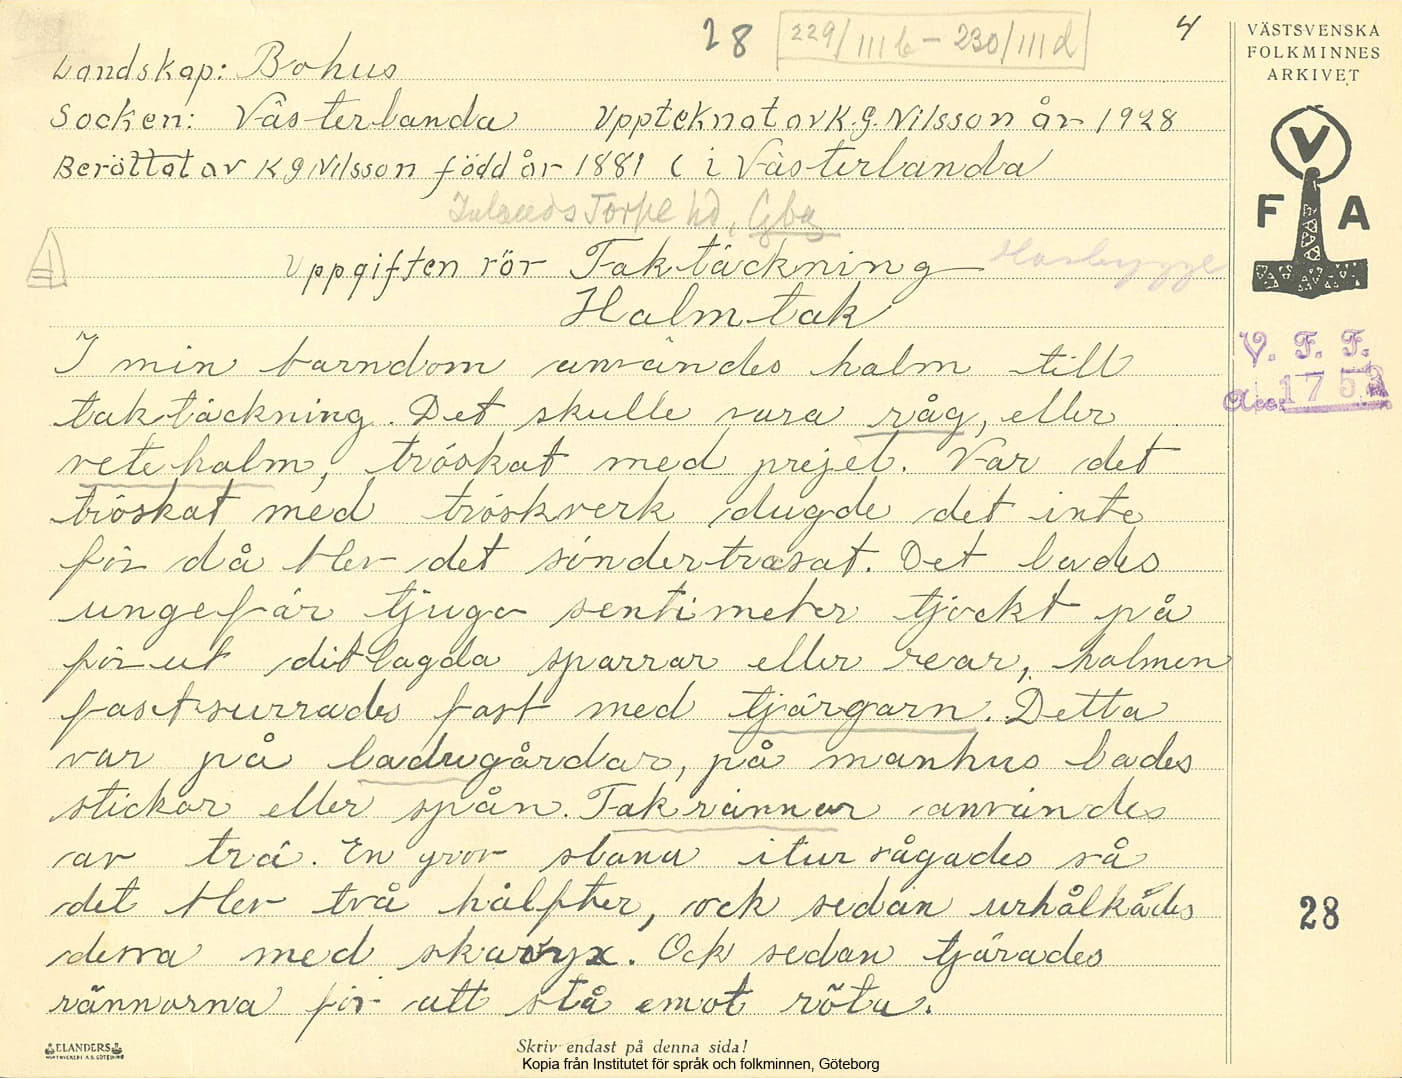 28 229/III b - 230/III d 4
Landskap: Bohus
Socken: Västerlanda Upptecknat av K.G. Nilsson år 1928
Berättat av K G Nilsson född år 1881 ( i Västerlanda
Inlands Torpe hd, Gbg
Uppgiften rör Taktäckning Husbygge
Halmtak
I min barndom användes halm till
taktäckning. Det skulle vara råg, eller
vetehalm, tröskat med prejel. Var det
tröskat med tröskverk dugde det inte
för då blev det söndertrasat. Det lades
ungefär tjugo sentimeter tjockt på
förut ditlagda sparrar eller rear, halmen
fastsurrades fast med tjärgarn. Detta
var på ladugårdar, på manhus lades
stickor eller spån. Takrännor användes
av trä. En grov stana itursågades så
det blev två hälfter, ock sedan urhålkades
dessa med skarvyx. Ock sedan tjärades
rännorna för att stå emot röta.
VÄSTSVENSKA
FOLKMINNES
ARKIVET
V
F A
V. F. F.
Acc. 1752
28
ELANDERS
Skriv endast på denna sida!
Kopia från Institutet för språk och folkminnen, Göteborg